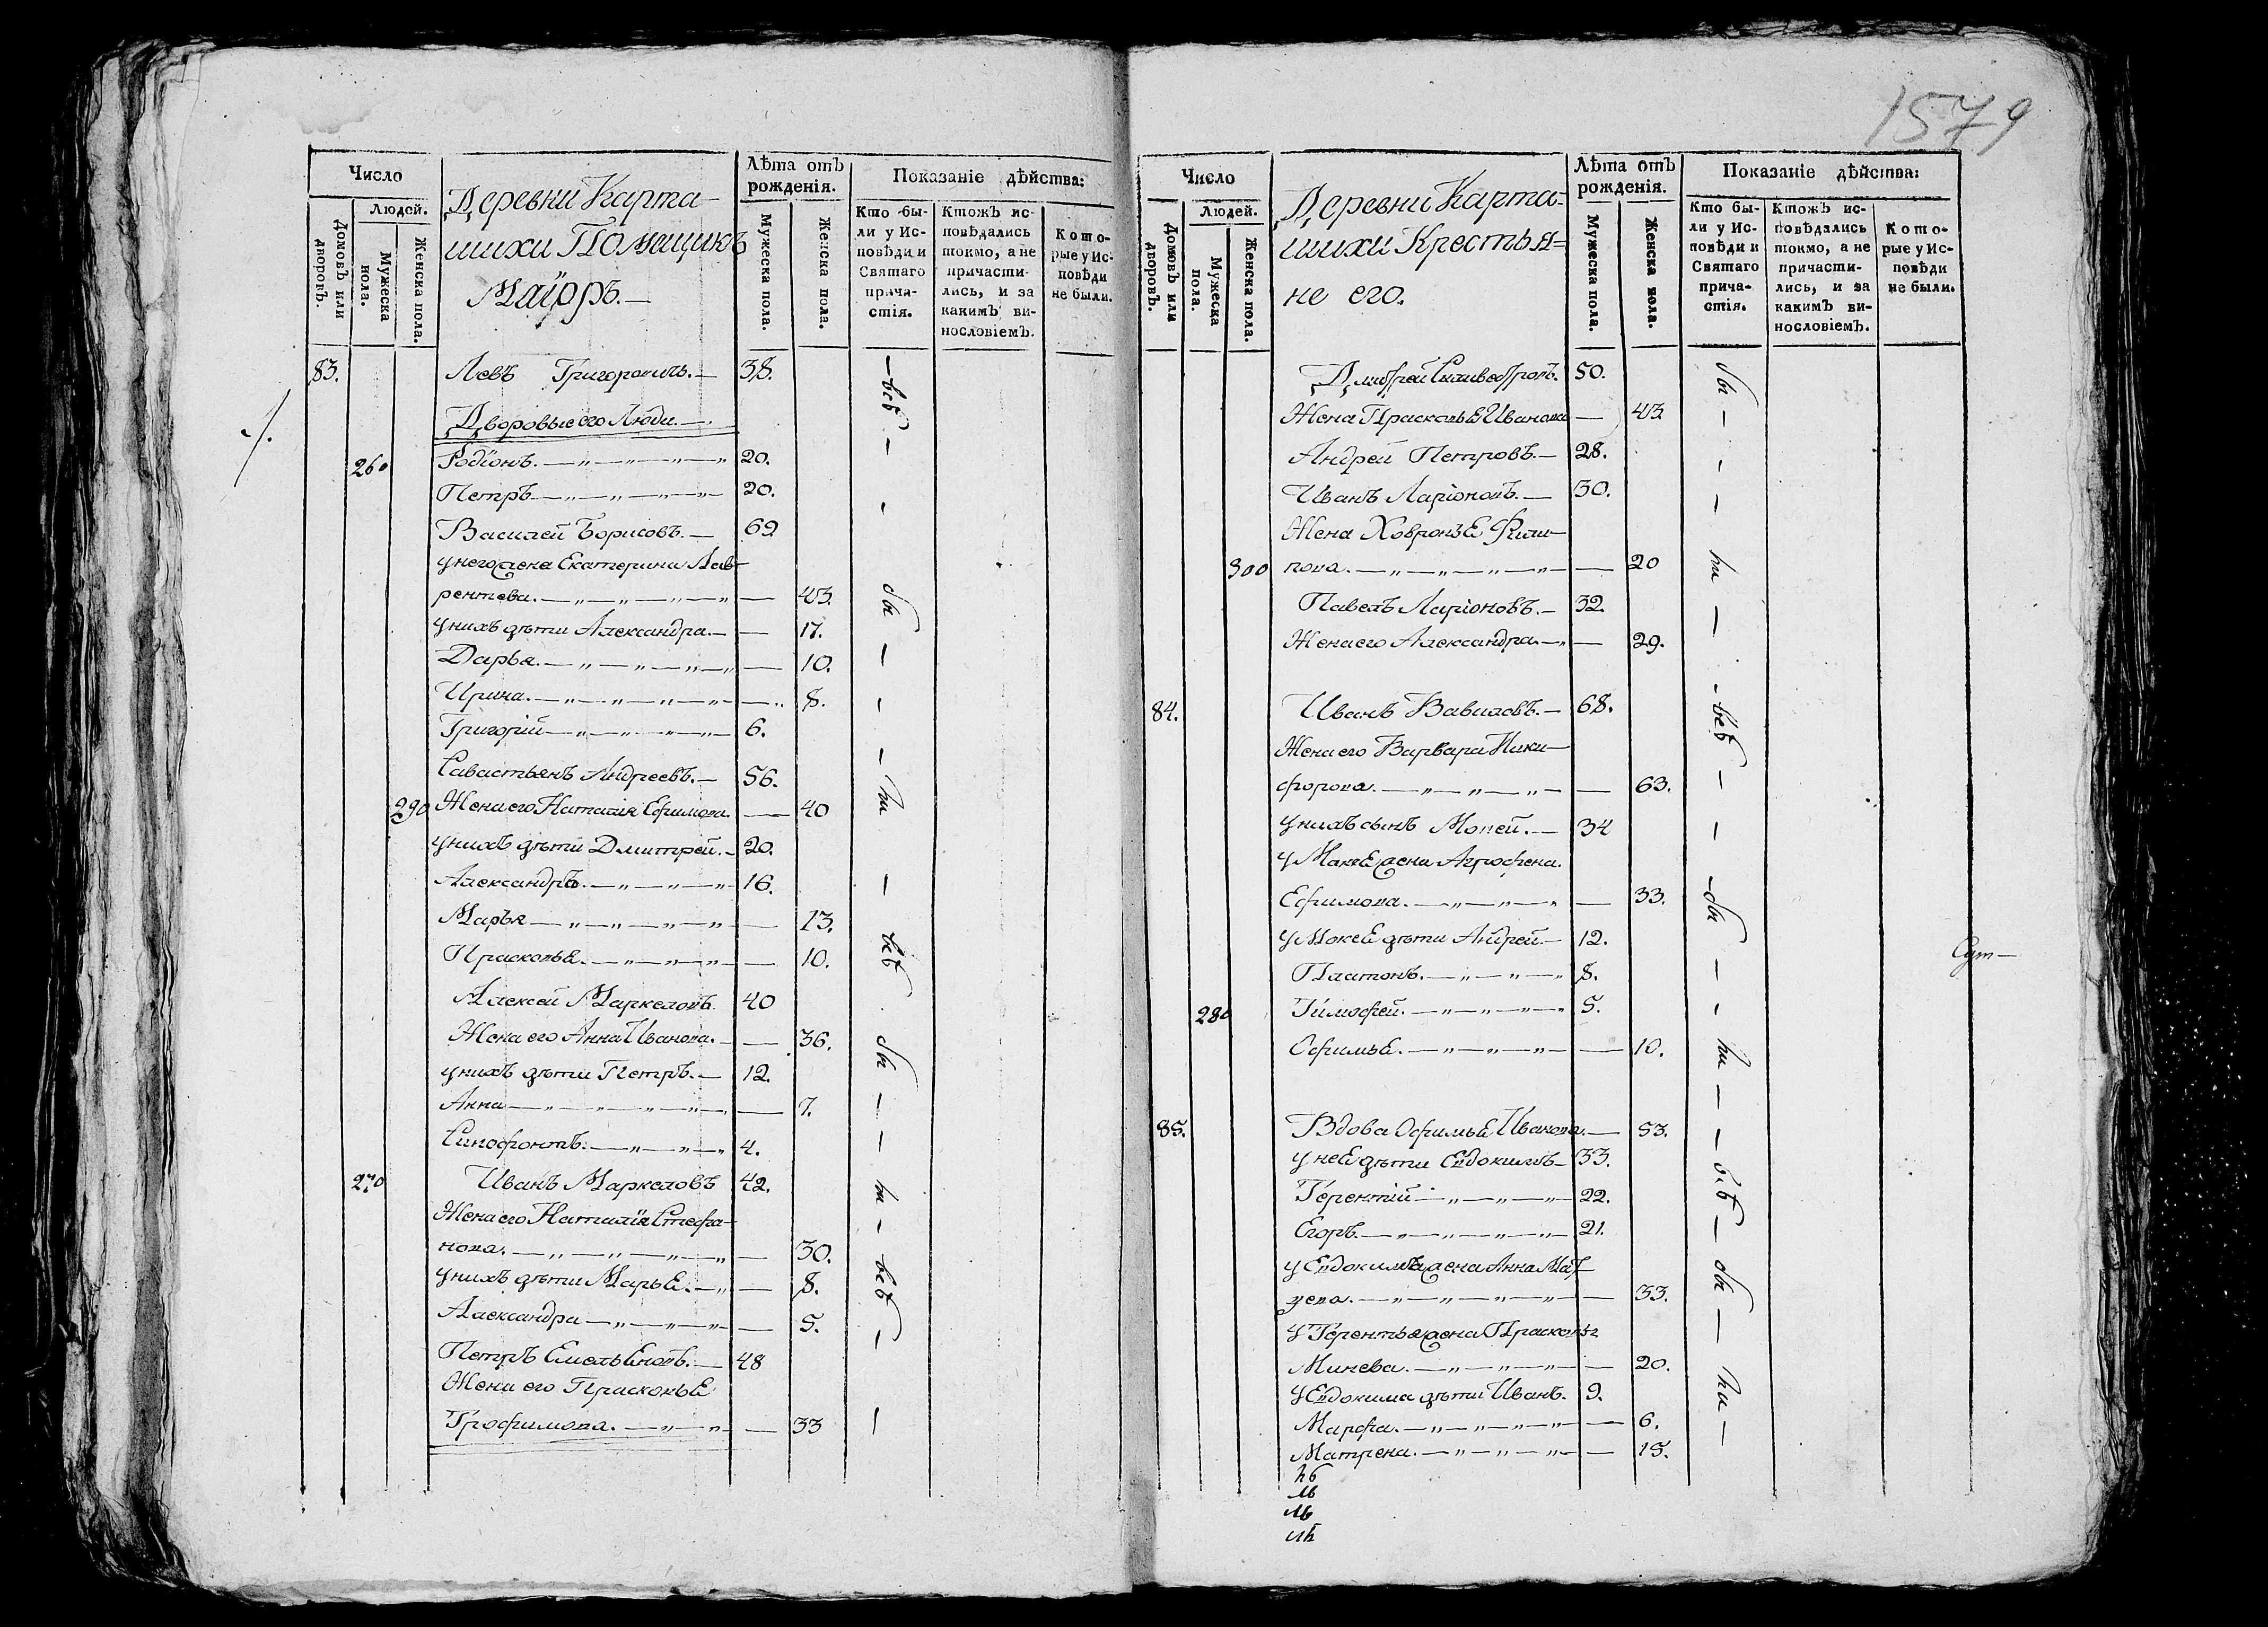 1579
Число
Людей.
Домовъ или дворовъ.
Мужеска пола.
Женска пола.
Деревни Карта-
шихи Помещикъ
Маiоръ.—
Лѣта отъ рожденія.
Мужеска пола.
Женска пола.
Показаніе дѣйства:
Кто бы-
ли у Ис-
повѣди и
Святаго
прича-
стія.
Ктожъ ис-
повѣдались
токмо, а не
причасти-
лись, и за
какимъ ви-
нословіемъ.
Кото-
рые у Ис-
повѣди
не были.
83. Левъ Григоровичъ.— 38.
Дворовые его Люди.—
260 Родіонъ. 20.
Петръ 20.
Василей Борисовъ.— 69
у него жена Екатерина Лав-
рентева. — 43.
у нихъ дѣти Александра.— — 17.
Дарья. — 10.
Ирина. — 8.
Григорій 6.
Савастьянъ Андреевъ.— 56.
290 Жена его Наталія Ефимова. — 40
у нихъ дѣти Дмитрей.— 20.
Александръ. 16.
Марья — 13.
Прасковья. — 10.
Алексей Маркеловъ. 40
Жена его Анна Иванова.— — 36.
у нихъ дѣти Петръ.— 12.
Анна — 7.
Синофонтъ. 4.
270 Иванъ Маркеловъ 42.
Жена его Наталія Стефа-
нова. — 30.
у нихъ дѣти Марья. — 8.
Александра — 5.
Петръ Емельяновъ.— 48
Жена его Прасковья
Трофимова. — 33
всѣ
бы
ли
всѣ
бы
ли
всѣ
Число
Людей.
Домовъ или дворовъ.
Мужеска пола.
Женска пола.
Деревни Карта-
шихи Крестья=
не его.
Лѣта отъ рожденія.
Мужеска пола.
Женска пола.
Показаніе дѣйства:
Кто бы-
ли у Ис-
повѣди и
Святаго
прича-
стія.
Ктожъ ис-
повѣдались
токмо, а не
причасти-
лись, и за
какимъ ви-
нословіемъ.
Кото-
рые у Ис-
повѣди
не были.
Дмитрей Силивестровъ. 50.
Жена Прасковья Иванова — 43
Андрей Петровъ.— 28.
Иванъ Ларіоновъ.— 30.
Жена Хавронья Фили-
300 пова. — 20
Павелъ Ларіоновъ.— 32.
Жена его Александра. — 29.
84. Иванъ Вавиловъ.— 68.
Жена его Варвара Ники-
форова. — 63.
у нихъ сынъ Мокей.— 34
у Мокея жена Агрофена.
Ефимова. — 33.
у Мокея дѣти Андрей.— 12.
Платонъ. 8.
280 Тимофей. 5.
Офимья. — 10.
85. Вдова Офимья Иванова.— 53.
у нея дѣти Евдокимъ— 33.
Терентій 22.
Егоръ. 21.
у Евдокима жена Анна Мат
вева. — 33.
у Терентья жена Прасковья
Минева. — 20.
у Евдокима дѣти Иванъ. 9.
Марфа. — 6.
Матрена. — 15.
бы
ли
всѣ
бы
ли
всѣ
бы
ли
Сут—